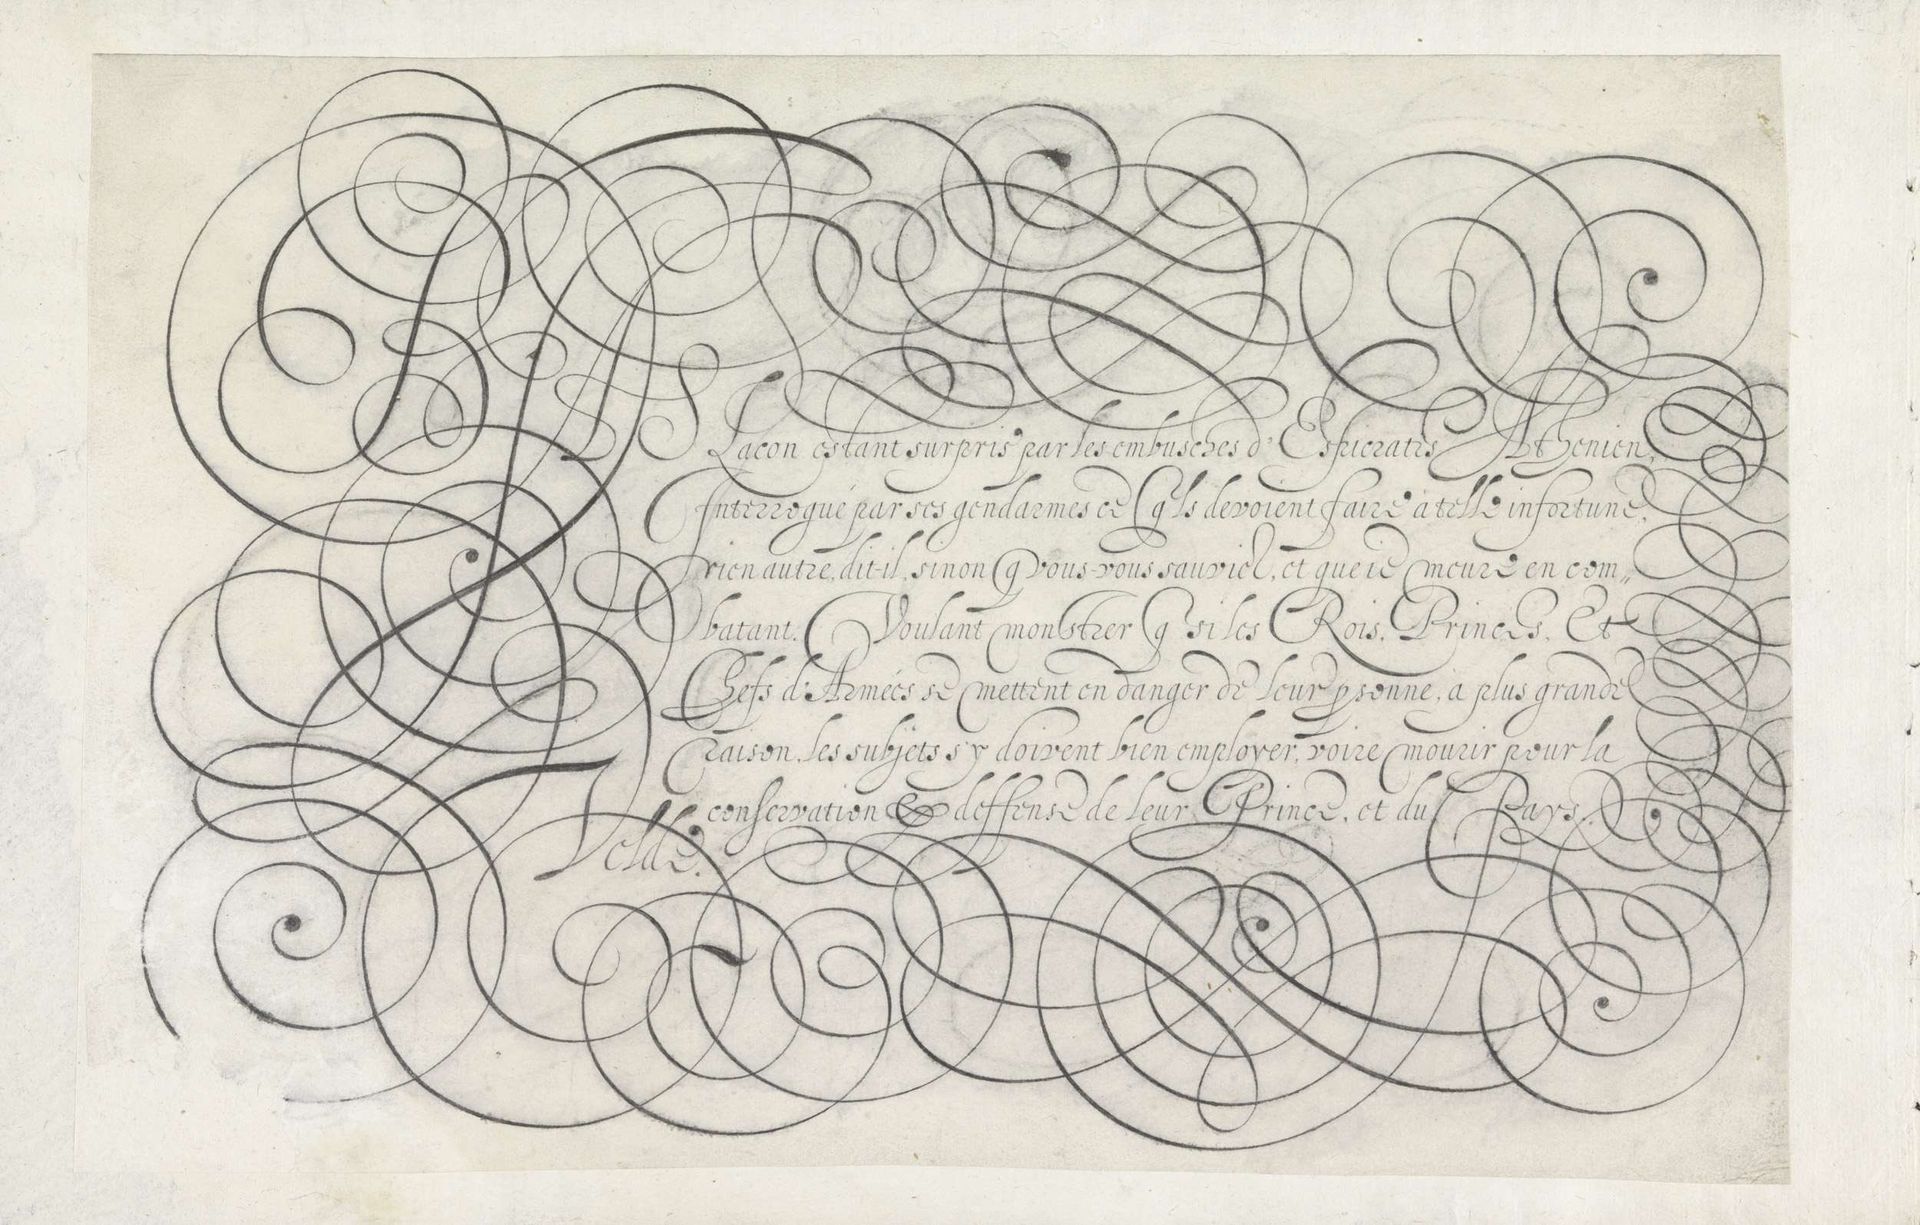 Lacon estant surpris par les embusches d' Esficratis Athenien,
Interrogué par ses gendarmes ce q'ls devoient faire à telle infortune,
rien autre, dit-il, sinon q vous-vous sauviez, et que ie meure en com„
batant. Voulant monstrer q si les Rois, Princes, Et
Chefs d'Armées se mettent en danger de leur psonne, a plus grande
raison, les subjets s'y doivent bien employer, voire mourir pour la
conservation & deffense de leur Prince, et du Pays.
Velde.